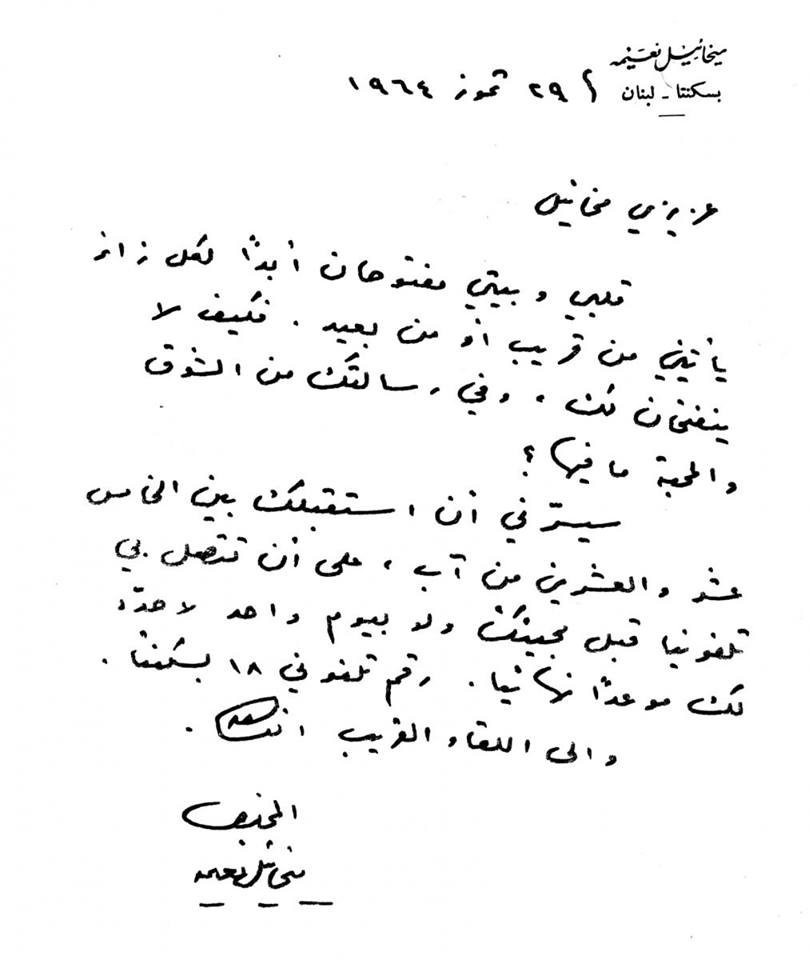 ميخائيل نعيمه
بسكنتا - لبنان
٢٩ تموز ١٩٦٤
عزيزي مخائيل
قلبي وبيتي مفتوحان أبدًا لكل زائر
يأتيني من قريب أو من بعيد . فكيف لا
ينفتحان لك ، وفي رسالتك من الشوق
والمحبة ما فيها ؟
سيسرّني أن استقبلك بين الخامس
عشر والعشرين من آب ، على أن تتصل بي
تلفونيا قبل مجيئك ولو بيوم واحد لاحدّد
لك موعدًا نهائيا . رقم تلفوني ١٨ بسكنتا .
والى اللقاء القريب
ميخائيل نعيمه